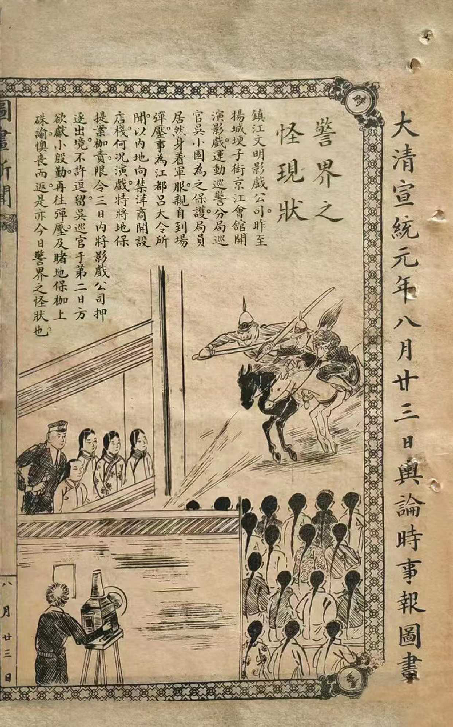 大清宣統元年八月廿三日輿論時事報圖畫
警界之
怪現狀
鎮江文明影戲公司。昨至
揚城埂子街京江會館開
演影戲運動巡警分局巡
官吳小園為之保護局員
居然身着軍服。親自到場
彈壓事為江都呂大令所
聞以內地向禁洋商開設
店棧何況演戲特將地保
提案枷責限令三日內將影戲公司押
逐出境不許逗留吳巡官于第二日方
欲獻小殷勤再往彈壓及睹地保枷上
硃諭懊喪而返是亦今日警界之怪狀也
圖畫新聞
八月廿三日